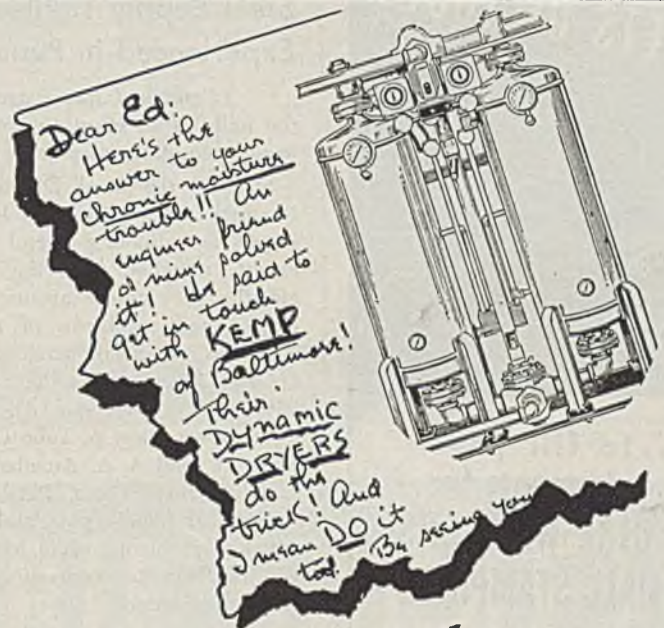 Dear Ed:
Here's the
answer to your
chronic moisture
trouble!! An
engineer friend
of mine solved
it! He said to
get in touch
with KEMP
of Baltimore!
Their
DYNAMIC
DRYERS
do the
trick! And
I mean DO it
too! Be seeing you